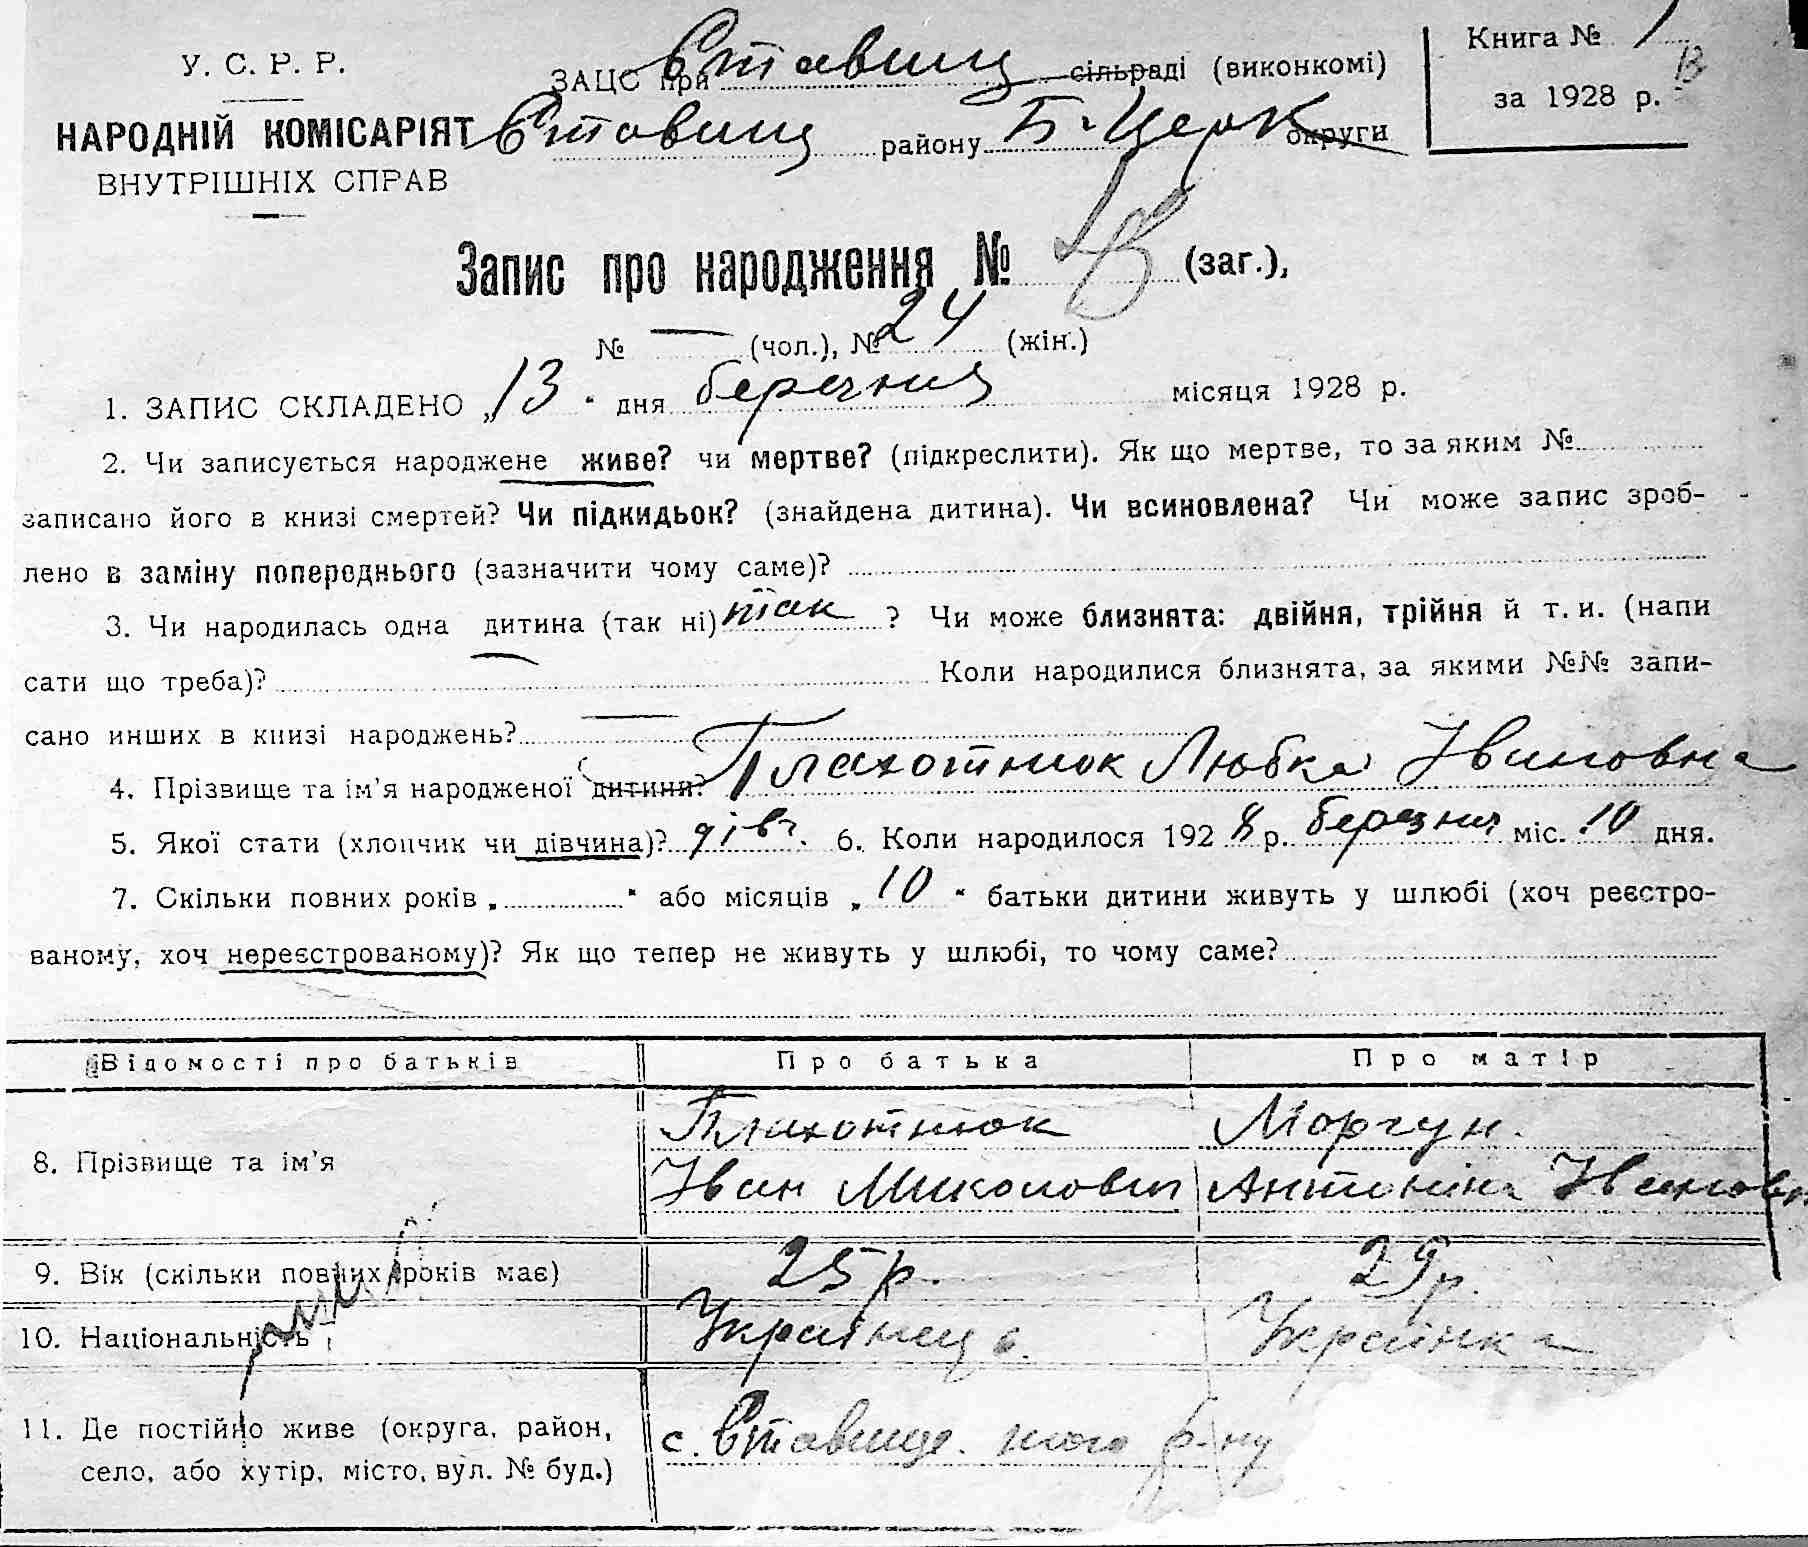 У. С. Р. Р.
НАРОДНІЙ КОМІСАРІЯТ
ВНУТРІШНІХ СПРАВ
ЗАЦС при Ставищ сільраді (виконкомі)
Ставищ району Б-Церк округи
Книга № 1
за 1928 р.
Запис про народження № (заг.),
№ — (чол.), № 24 (жін.)
1. ЗАПИС СКЛАДЕНО „13“ дня березня місяця 1928 р.
2. Чи записується народжене живе? чи мертве? (підкреслити). Як що мертве, то за яким №
записано його в книзі смертей? Чи підкидьок? (знайдена дитина). Чи всиновлена? Чи може запис зроб-
лено в заміну попереднього (зазначити чому саме)?
3. Чи народилась одна дитина (так ні) так ? Чи може близнята: двійня, трійня й т. и. (напи
сати що треба)? — Коли народилися близнята, за якими №№ запи-
сано инших в книзі народжень? —
4. Прізвище та ім’я народженої дитини? Плахотнюк Любка Ивановна
5. Якої стати (хлопчик чи дівчина)? дівч. 6. Коли народилося 1928 р. березня міс. 10 дня.
7. Скільки повних років „ “ або місяців „10“ батьки дитини живуть у шлюбі (хоч реєстро-
ваному, хоч нереєстрованому)? Як що тепер не живуть у шлюбі, то чому саме?
Відомості про батьків Про батька Про матір
8. Прізвище та ім’я
Плахотнюк
Іван Миколович
Моргун.
Антоніна Ивановн
9. Вік (скільки повних років має) 25 р. 29 р.
10. Національність Українець. Українка
11. Де постійно живе (округа, район,
село, або хутір, місто, вул. № буд.)
с. Ставище. р-ну